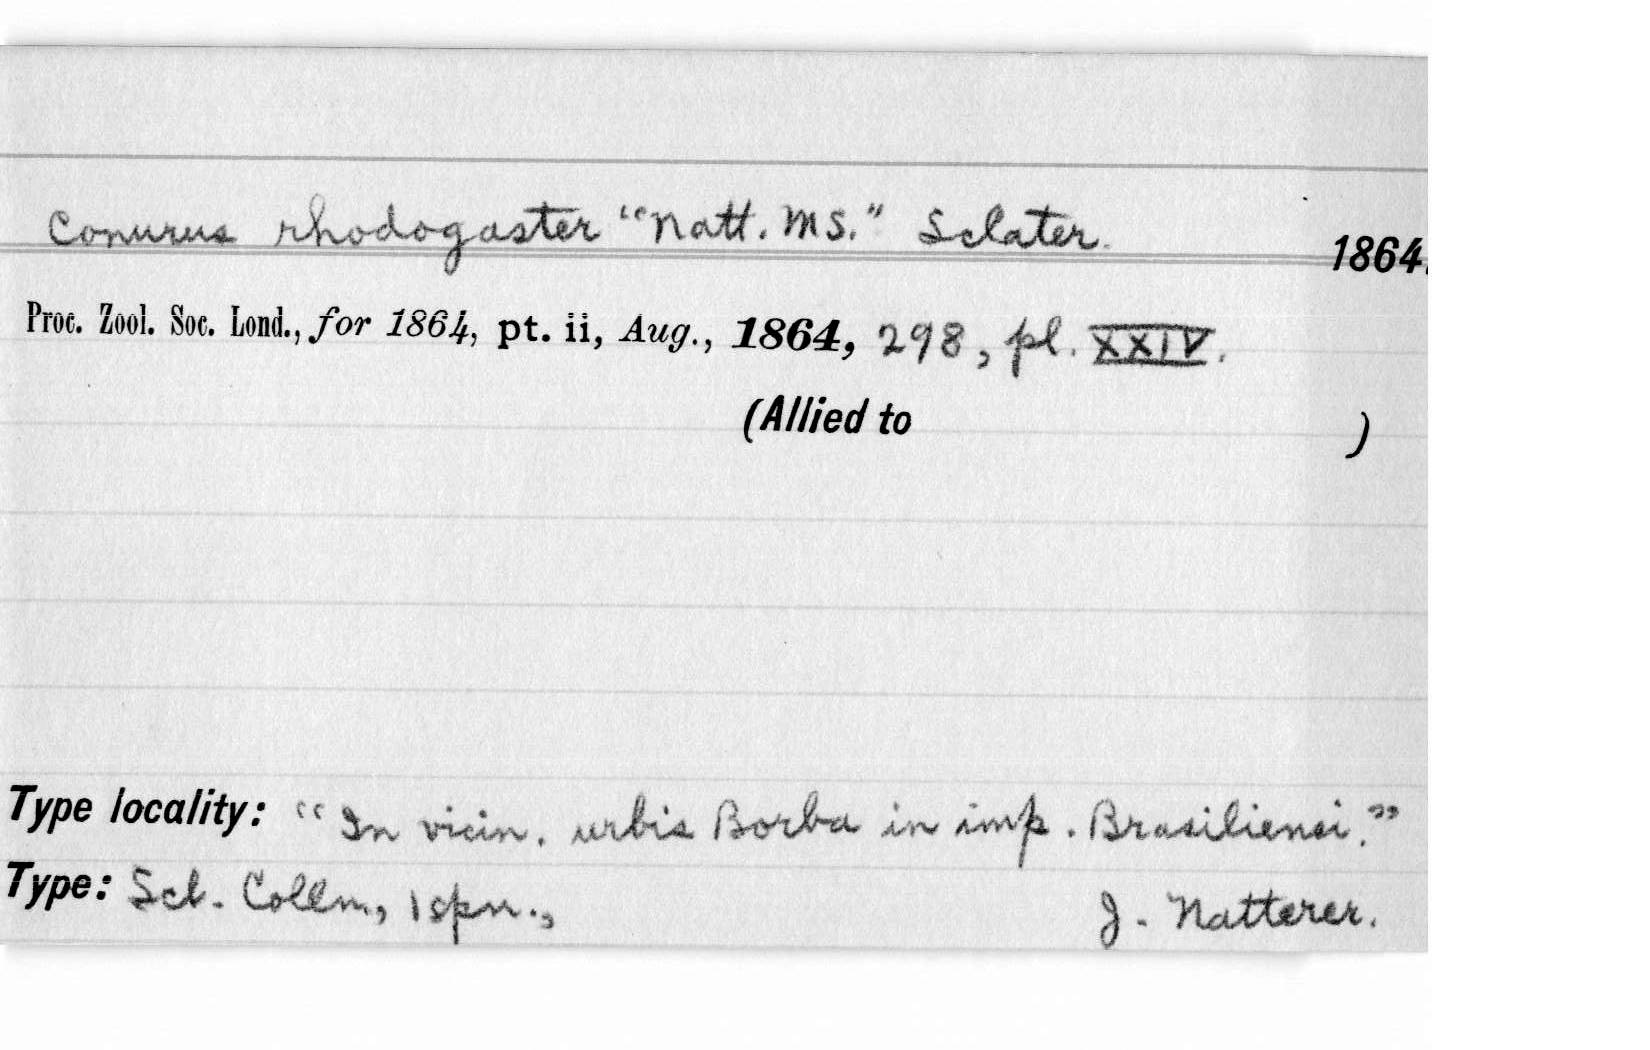 Conurus rhodogaster "Natt. MS." Sclater. 1864.
Proc. Zool. Soc. Lond., for 1864, pt. ii, Aug., 1864, 298, pl. XXIV.
(Allied to )
Type locality: "In vicin. urbis Borba in imp. Brasiliensi."
Type: Scl. Colln., 1 spn., J. Natterer.